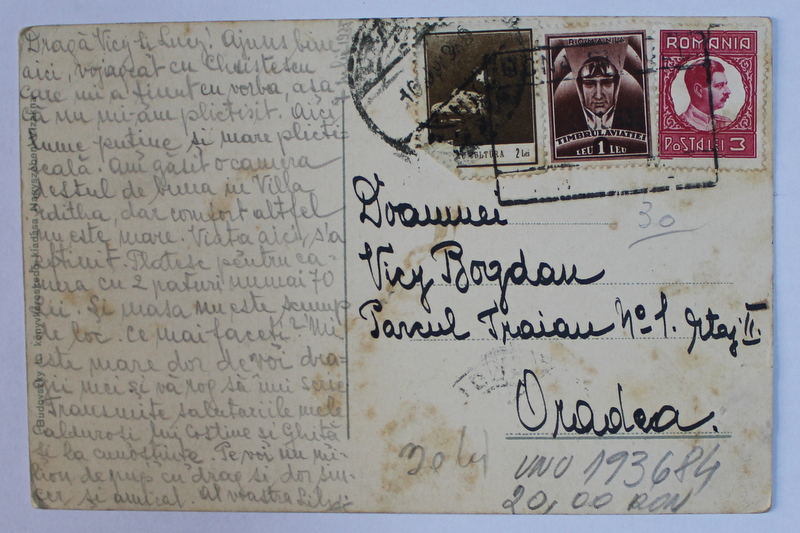 Dragă Vicy și Lucy! Ajuns bine
aici, voiajeat cu Christescu
care mi a ținut cu vorba, așa
că nu mi-am plictisit. Aici
lume puține și mare plicti-
seală. Am găsit o camera
destul de buna in Villa
Editha, dar comfort altfel
nu este mare. Viața aici, s'a
eftinit. Platesc pentru ca-
mera cu 2 paturi numai 70
lei. Și masa nu este scump
de loc. Ce mai faceți? Mi
este mare dor de voi dra-
gii mei și vă rog să 'mi scrie
Transmite salutarile mele
calduroși lui Costine și Ghiță
și la cunoștințe. Pe voi un mi-
lion de pup cu drag și dor sin-
cer, și amical. Al voastra
Budovszky
könyvkereskedő kiadása, Nagyszeben-Vizakna
CULTURA 2 Lei
ROMANIA
TIMBRUL AVIAȚIEI
LEU 1 LEU
ROMANIA
POSTA LEI 3
30
Doamnei
Vicy Bogdan
Parcul Traian No 1. etaj II.
Oradea.
20 lei
VNU 193684
20,00 RON